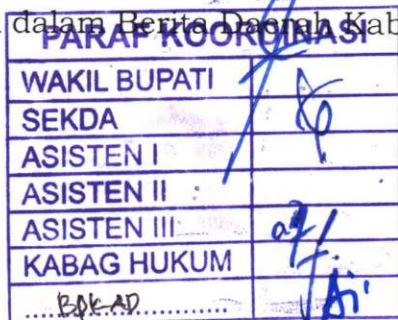 dalam Berita Daerah Kab
PARAF KOORDINASI
WAKIL BUPATI
SEKDA
ASISTEN I
ASISTEN II
ASISTEN III
KABAG HUKUM
BPKAD